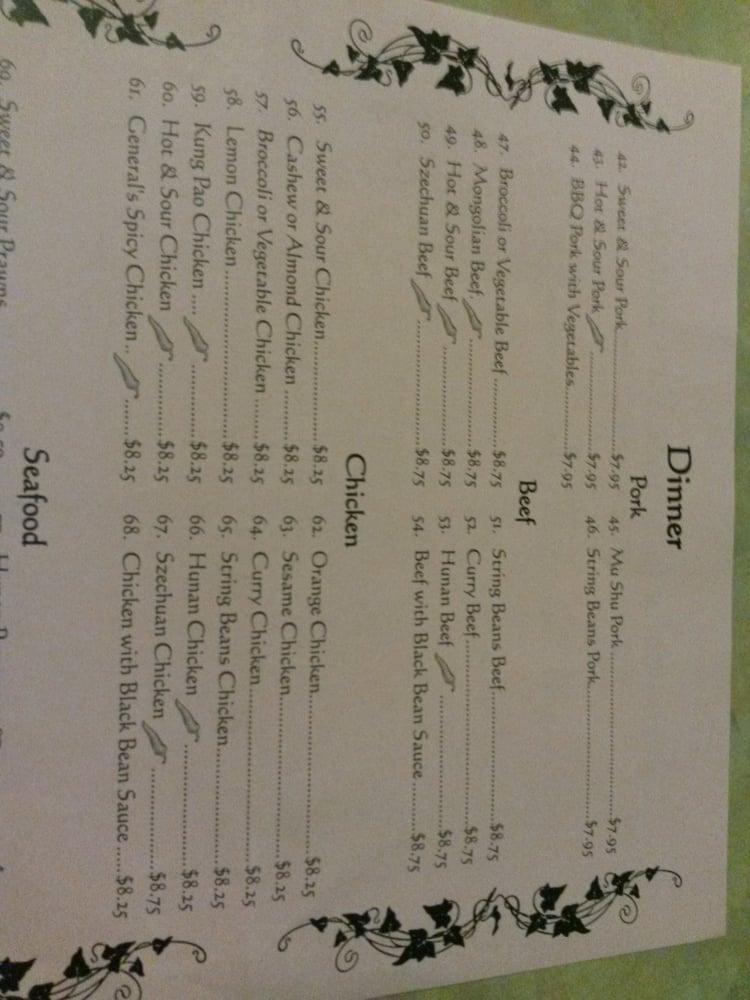 Dinner
Pork
42. Sweet & Sour Pork........$7.95
43. Hot & Sour Pork........$7.95
44. BBQ Pork with Vegetables........$7.95
45. Mu Shu Pork........$7.95
46. String Beans Pork........$7.95
Beef
47. Broccoli or Vegetable Beef........$8.75
48. Mongolian Beef........$8.75
49. Hot & Sour Beef........$8.75
50. Szechuan Beef........$8.75
51. String Beans Beef........$8.75
52. Curry Beef........$8.75
53. Hunan Beef........$8.75
54. Beef with Black Bean Sauce........$8.75
Chicken
55. Sweet & Sour Chicken........$8.25
56. Cashew or Almond Chicken........$8.25
57. Broccoli or Vegetable Chicken........$8.25
58. Lemon Chicken........$8.25
59. Kung Pao Chicken........$8.25
60. Hot & Sour Chicken........$8.25
61. General's Spicy Chicken........$8.25
62. Orange Chicken........$8.25
63. Sesame Chicken........$8.25
64. Curry Chicken........$8.25
65. String Beans Chicken........$8.25
66. Hunan Chicken........$8.25
67. Szechuan Chicken........$8.75
68. Chicken with Black Bean Sauce........$8.25
Seafood
69. Sweet & Sour Prawns